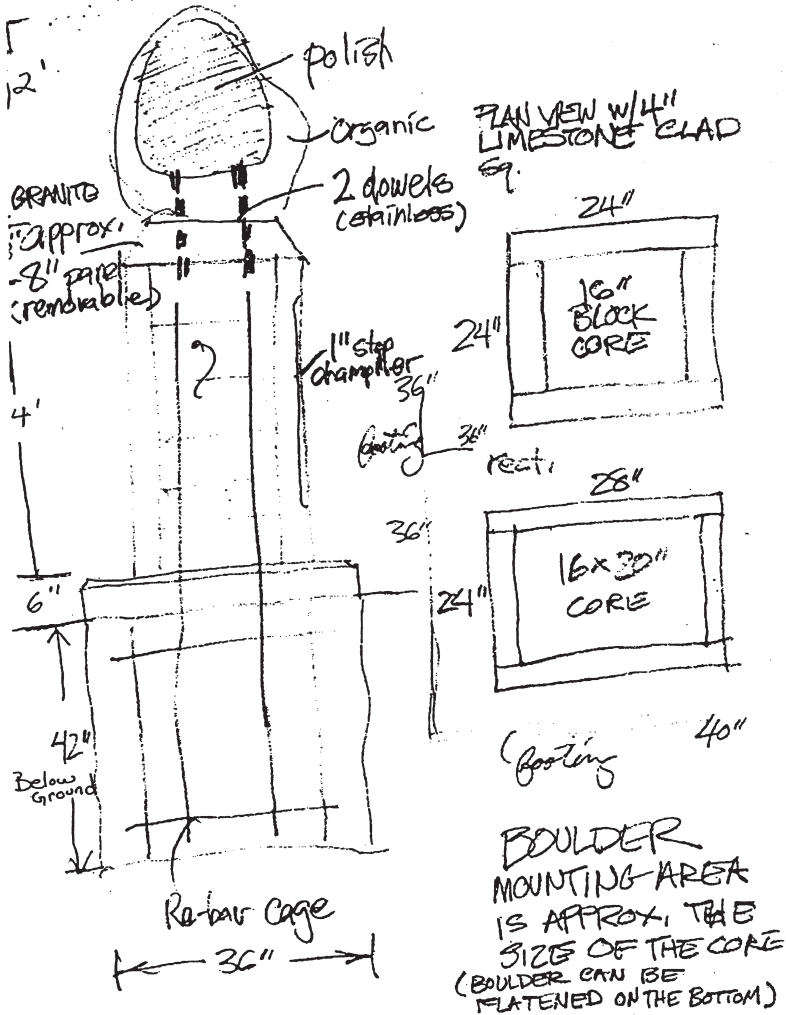 2'
polish
organic
2 dowels
(stainless)
GRANITE
approx.
-8" panel
(removable)
1" stop
champher
4'
6"
42"
Below
Ground
Re-bar cage
36"
PLAN VIEW W/4"
LIMESTONE CLAD
sq.
24"
24"
16"
BLOCK
CORE
36"
footing
36"
rect.
28"
36"
24"
16 x 20"
CORE
40"
(footing
BOULDER
MOUNTING AREA
IS APPROX. THE
SIZE OF THE CORE
(BOULDER CAN BE
FLATENED ON THE BOTTOM)